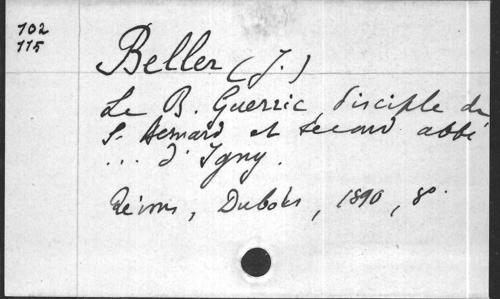 102
115
Beller (J.)
Le B. Guerric, disciple de
S. Bernard et second abbé
... d'Igny.
Reims, Dubois, 1890, 8°.